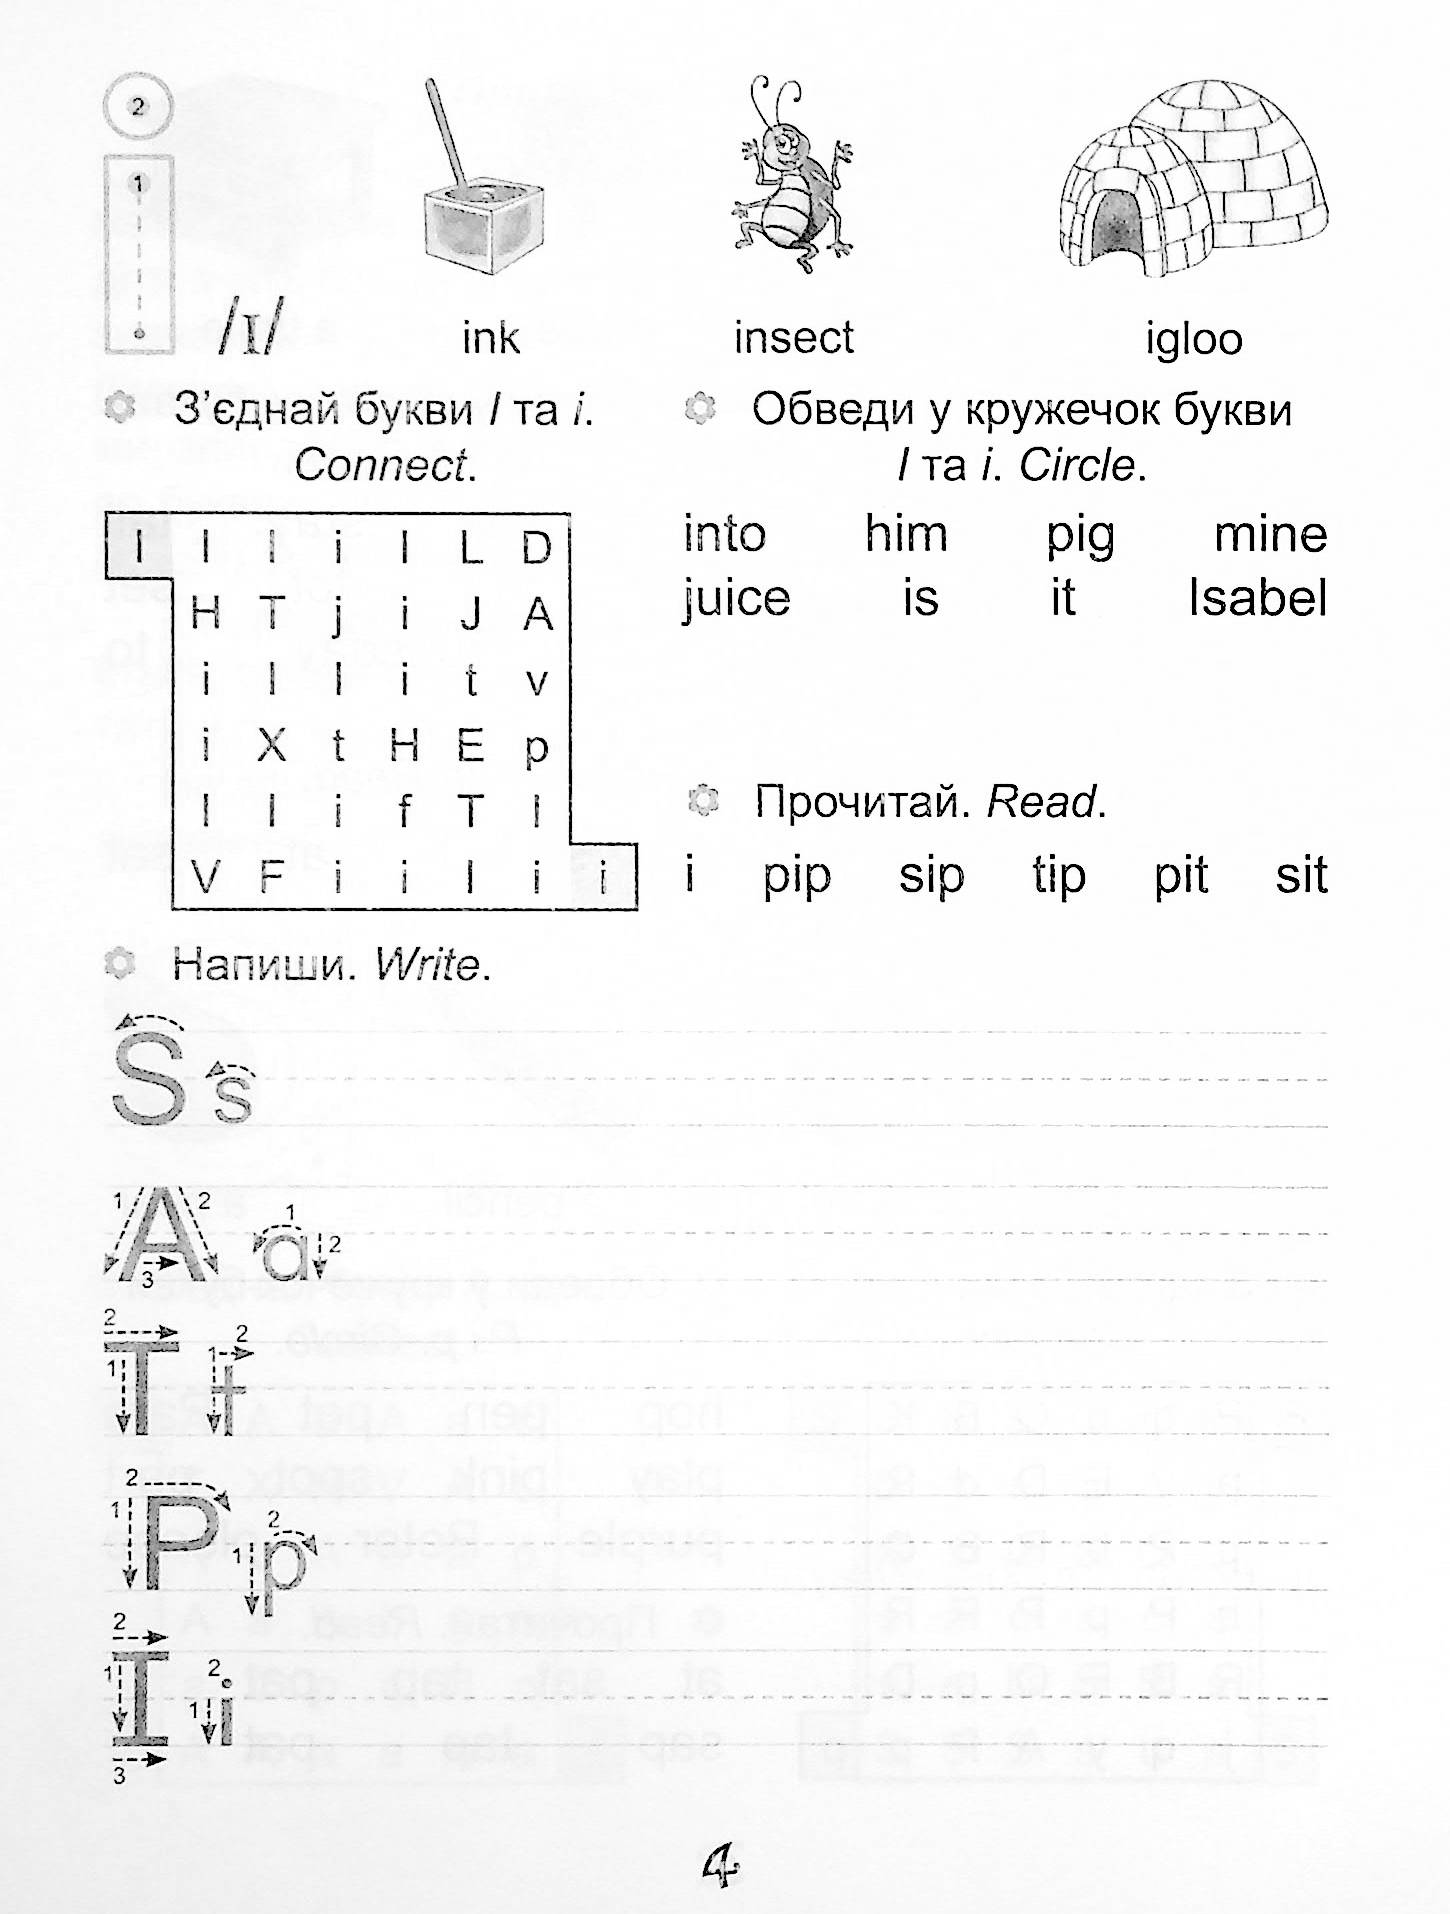 2
1
/ɪ/ ink insect igloo
З’єднай букви I та i.
Connect.
Обведи у кружечок букви
I та i. Circle.
I I I i I L D
H T j i J A
i I I i t v
i X t H E p
I I i f T I
V F i i I i i
into him pig mine
juice is it Isabel
Прочитай. Read.
i pip sip tip pit sit
Напиши. Write.
S s
1 2 3 A 1 2 a
2 1 T 2 1 t
2 1 P 2 1 p
2 1 3 I 2 1 i
4